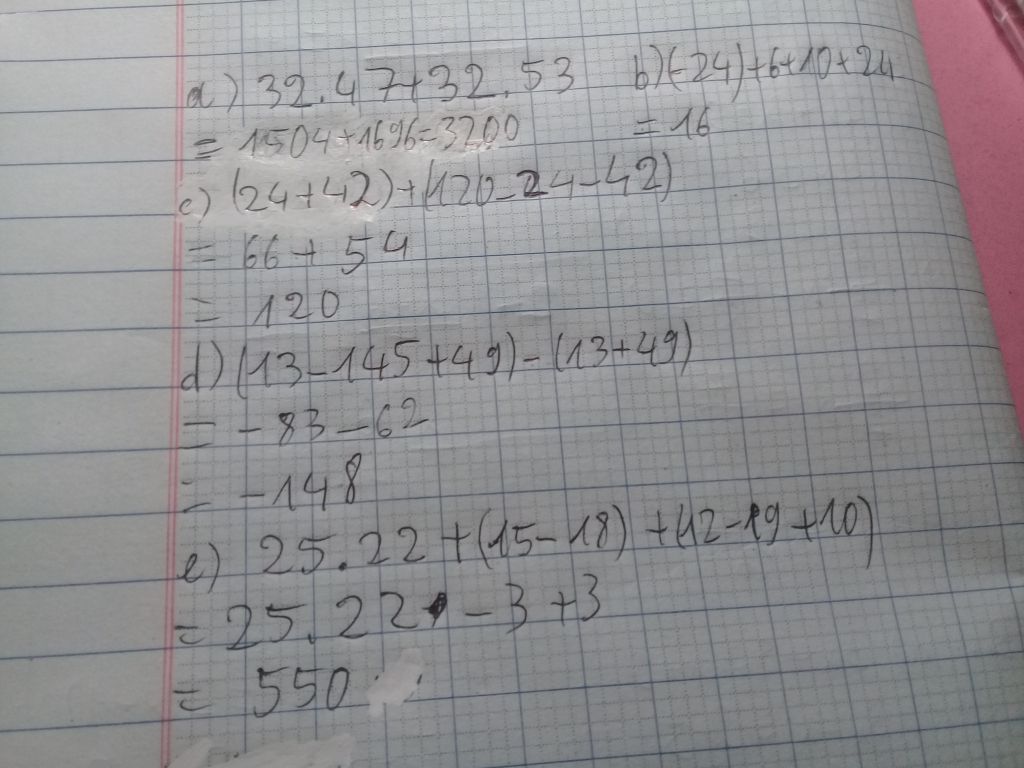 a) 32.47+32.53 b)(-24)+6+10+24
= 1504+1696=3200 =16
c) (24+42)+(120-24-42)
= 66+54
= 120
d) (13-145+49)-(13+49)
= -83-62
= -148
e) 25.22+(15-18)+(12-19+10)
= 25.22-3+3
= 550